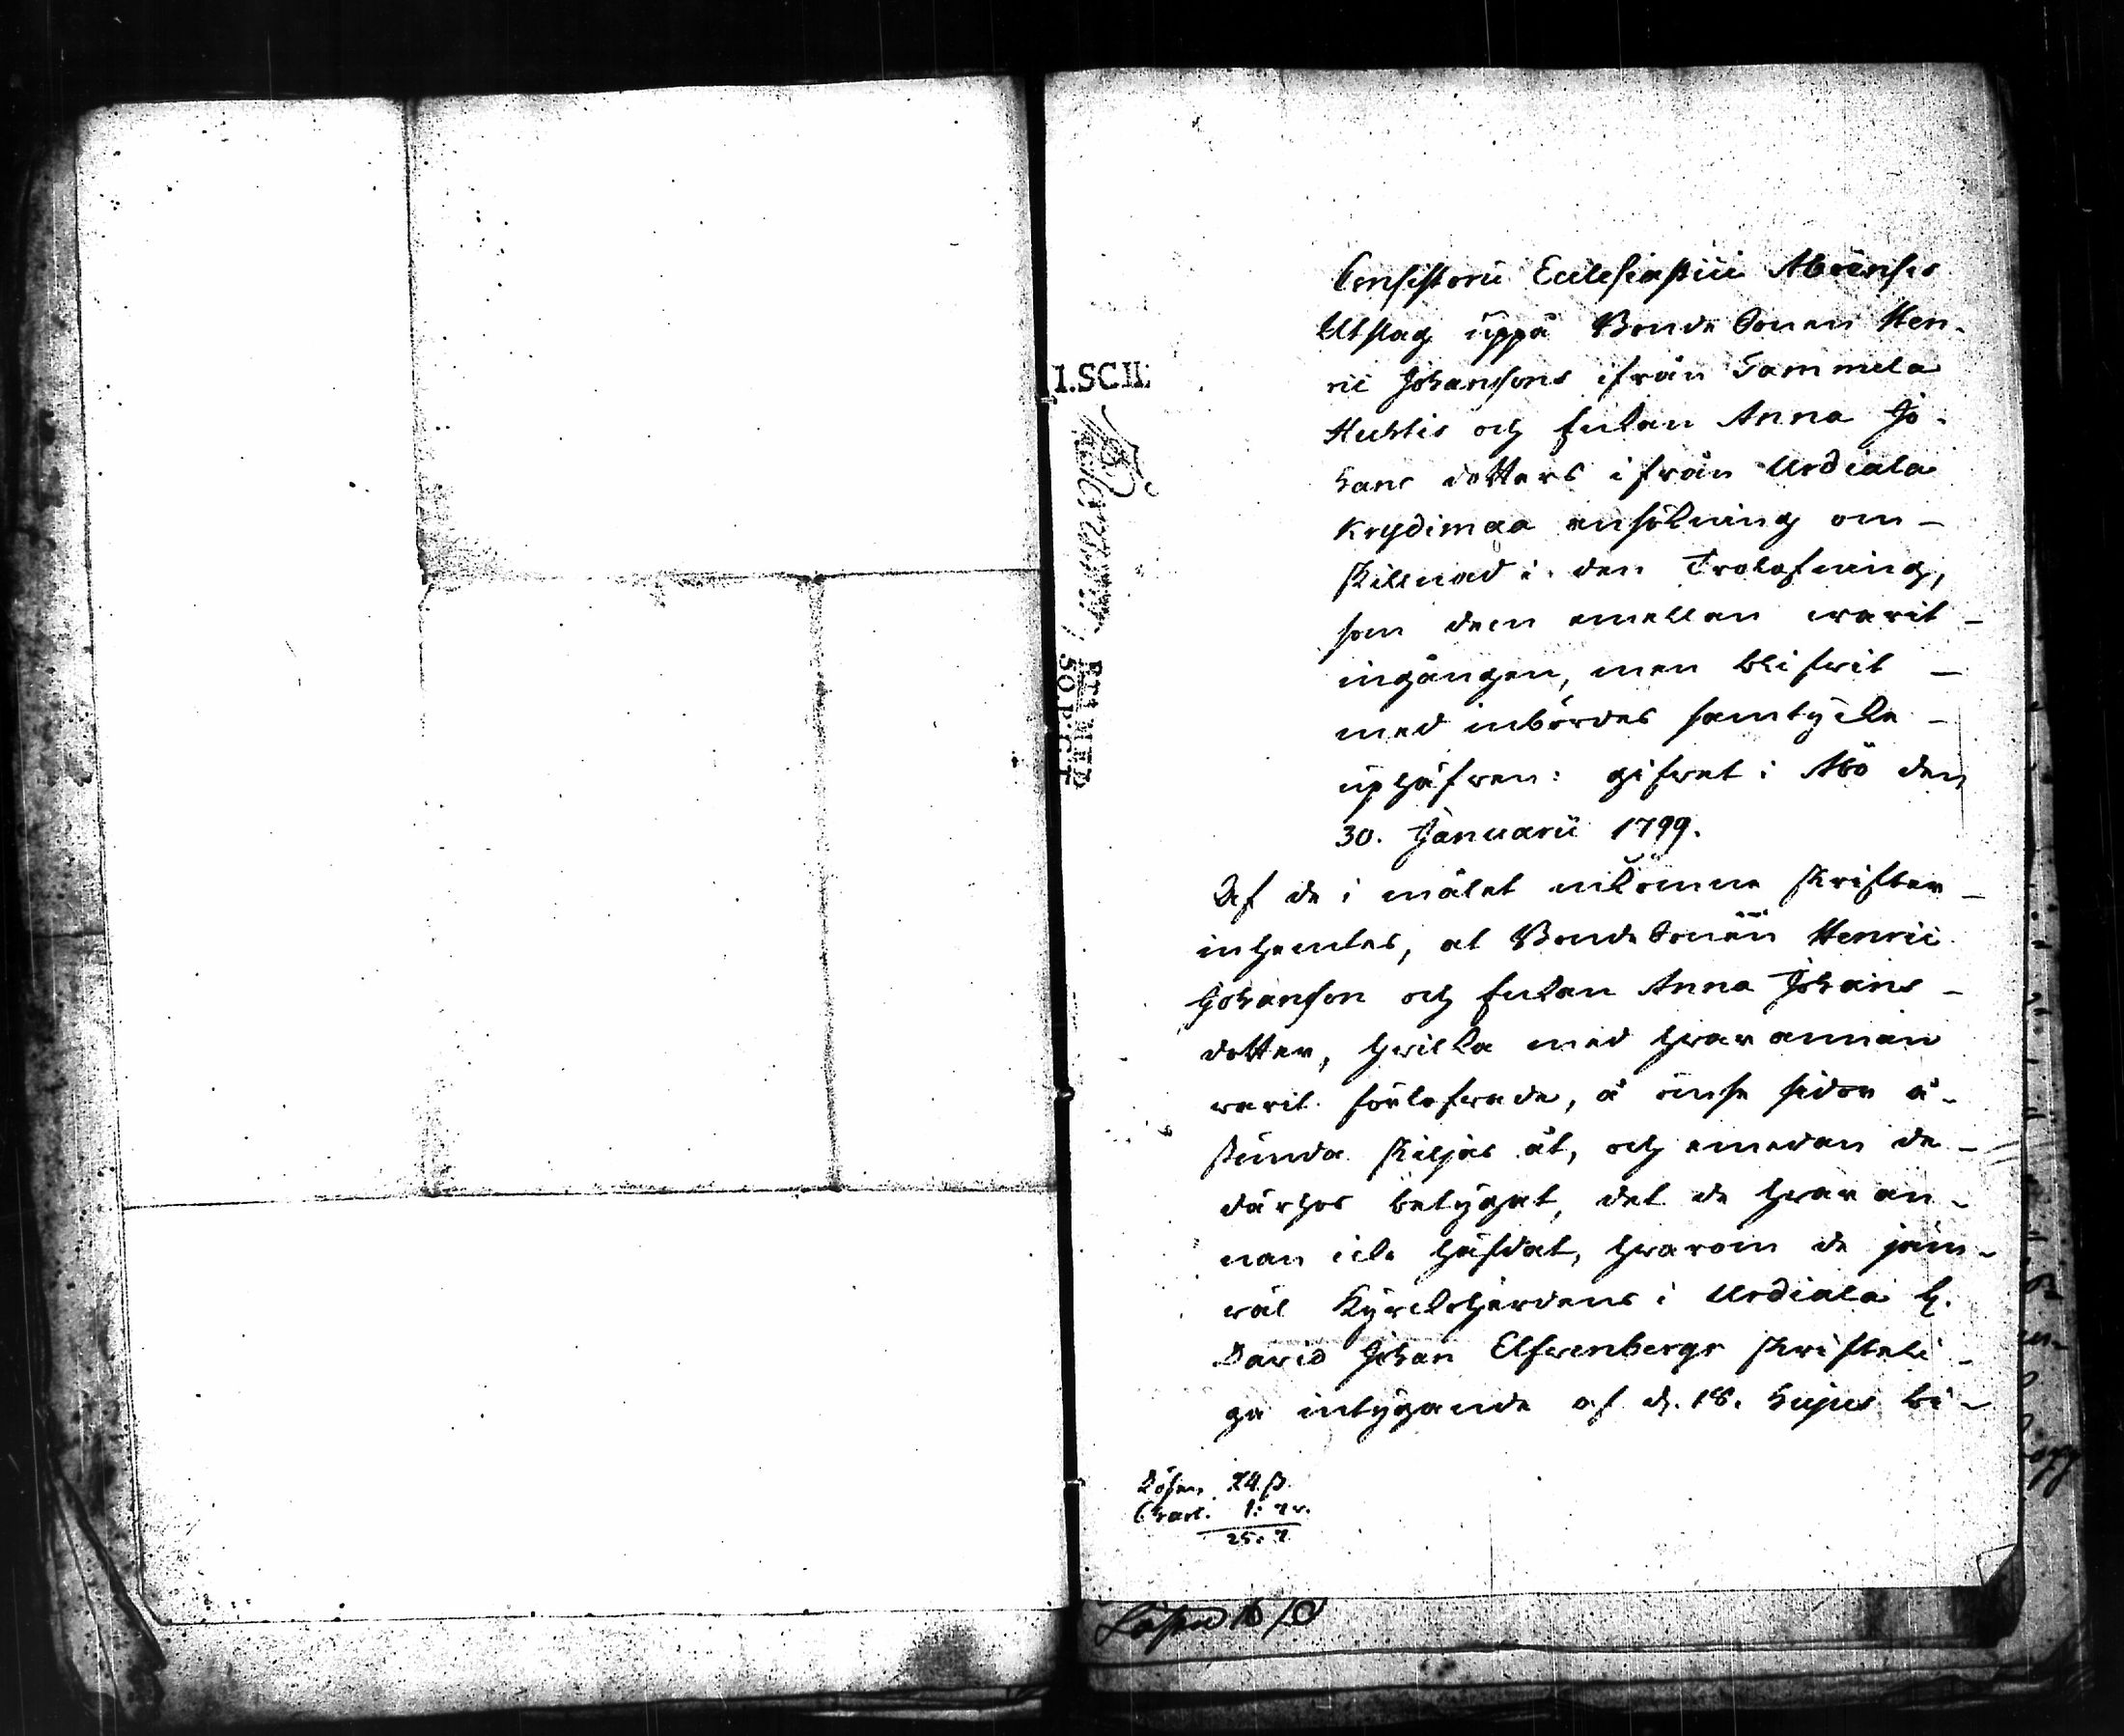 Consistorii Ecclesiastici Aboënsis
Utslag uppå Bonde Sonen Hen-
ric Johansons ifrån Tammela
Huhtis och Enkan Anna Jo-
hans dotters ifrån Urdiala
Krydimaa ansökning om
skillnad i den Trolofning,
som dem emellan warit
ingången, men blifwit
med inbördes samtycke
uphäfwen: gifwet i Åbo den
30. Januarii 1799.
Af de i målet inkomne skrifter
inhemtas, at Bonde Sonen Henric
Johanson och Enkan Anna Johans
dotter, hwilka med hwarannan
warit förlofwade, å ömse sidor å-
stunda skiljas åt, och emedan de
därhos betygat, det de hwaran-
nan icke häfdat, hwarom de jäm-
wäl Kyrckoherdens i Urdiala H.
David Johan Elfwenbergs skrifteli-
ga intygande af d. 18. hujus bi-
I.SC.II.
50.P:CT
Lösen, 24 ß.
Chart. 1: 7 r.
25: 7
Lösen 16 ß